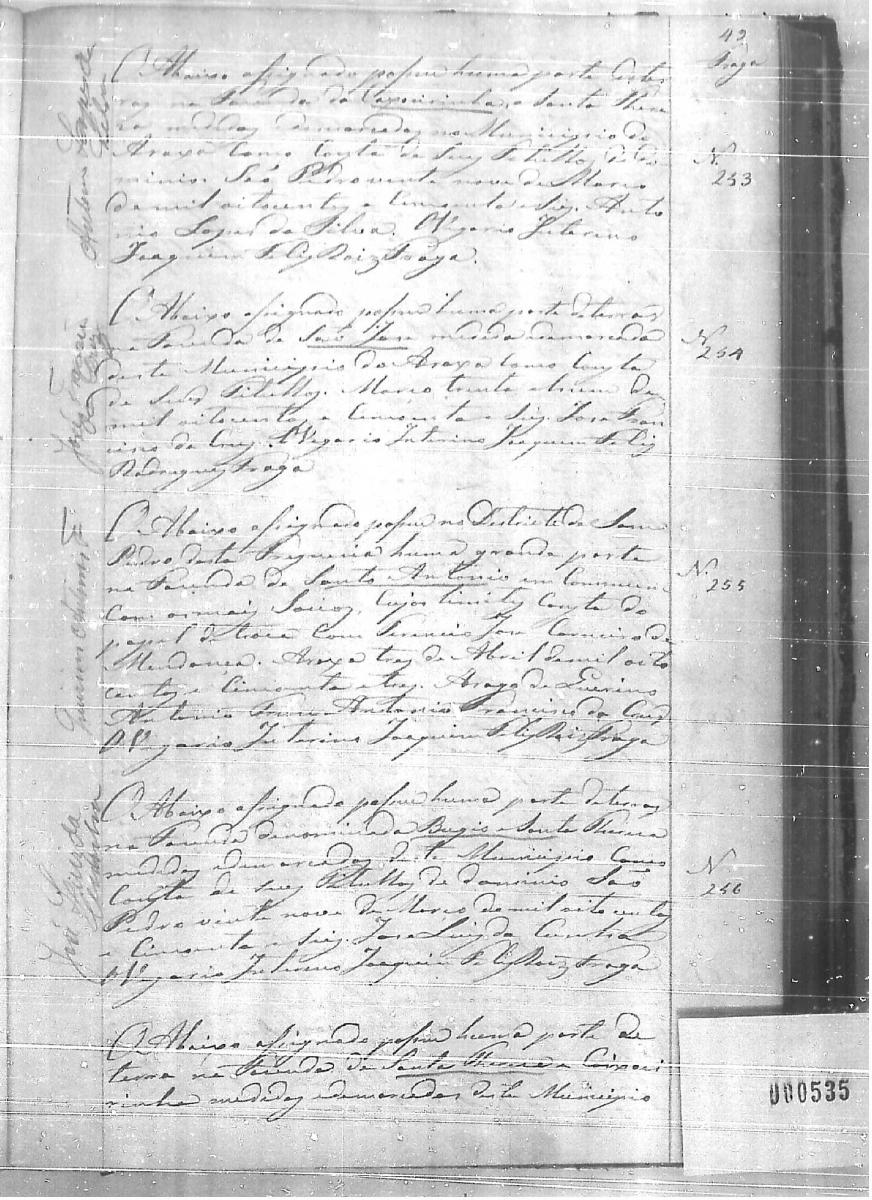 42
Fraga
O Abaixo assignado possue huma parte de ter
ras na Fazenda da Capoeirinha, e Santa There
za, medidas e demarcadas no Municipio do
Araxá Como Consta de Seus Titullos de do
minio. São Pedro vinte nove de Março
de mil oitocentos e Cincoenta e Seis. Anto
nio Lopes da Silva. O Vigario Interino
Joaquim Felis Roiz Fraga.
Antonio Lopes da
Silva
N.
253
O Abaixo assignado possue huma parte de terras
na Fazenda de São Jose medida e demarcada
deste Municipio do Araxa Como Consta
de Seus Titullos. Março trinta e hum de
mil oitocentos e Cincoenta e Seis. Jose Fran
cisco da Cruz. O Vigario Interino Joaquim Felis
Rodrigues Fraga
José Francisco
da Cruz
N.
254
O Abaixo assignado possue no Destricto de Sam
Pedro desta Freguezia huma grande parte
na Fazenda de Santo Antonio em Commum
Com os mais Socios, Cujos limites Consta do
papel de troca Com Francisco Jose Carneiro de
Mendonca. Araxa tres de Abril de mil oito
centos e Cincoenta e tres. Arogo de
Antonio Antonio Francisco da
O Vigario Interino Joaquim Felis Roiz Fraga
Antonio F
N.
255
O Abaixo assignado possue huma parte de terras
na Fazenda denominada e Santa Thereza
medidas e demarcadas deste Municipio Como
Consta de Seus Titullos de dominio São
Pedro vinte nove de Março de mil oito centos
e Cincoenta e Seis. Jose Luis da Cunha
O Vigario Interino Joaquim Felis Roiz Fraga
José Luis da
Cunha
N.
256
O Abaixo assignado possue huma parte de
terra na Fazenda de Santa Thereza e Capoei
rinha medidas e demarcadas deste Municipio
000535